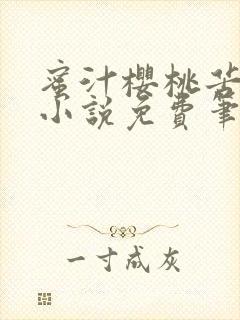 蜜汁樱桃苦
小说免费笔
一寸成灰